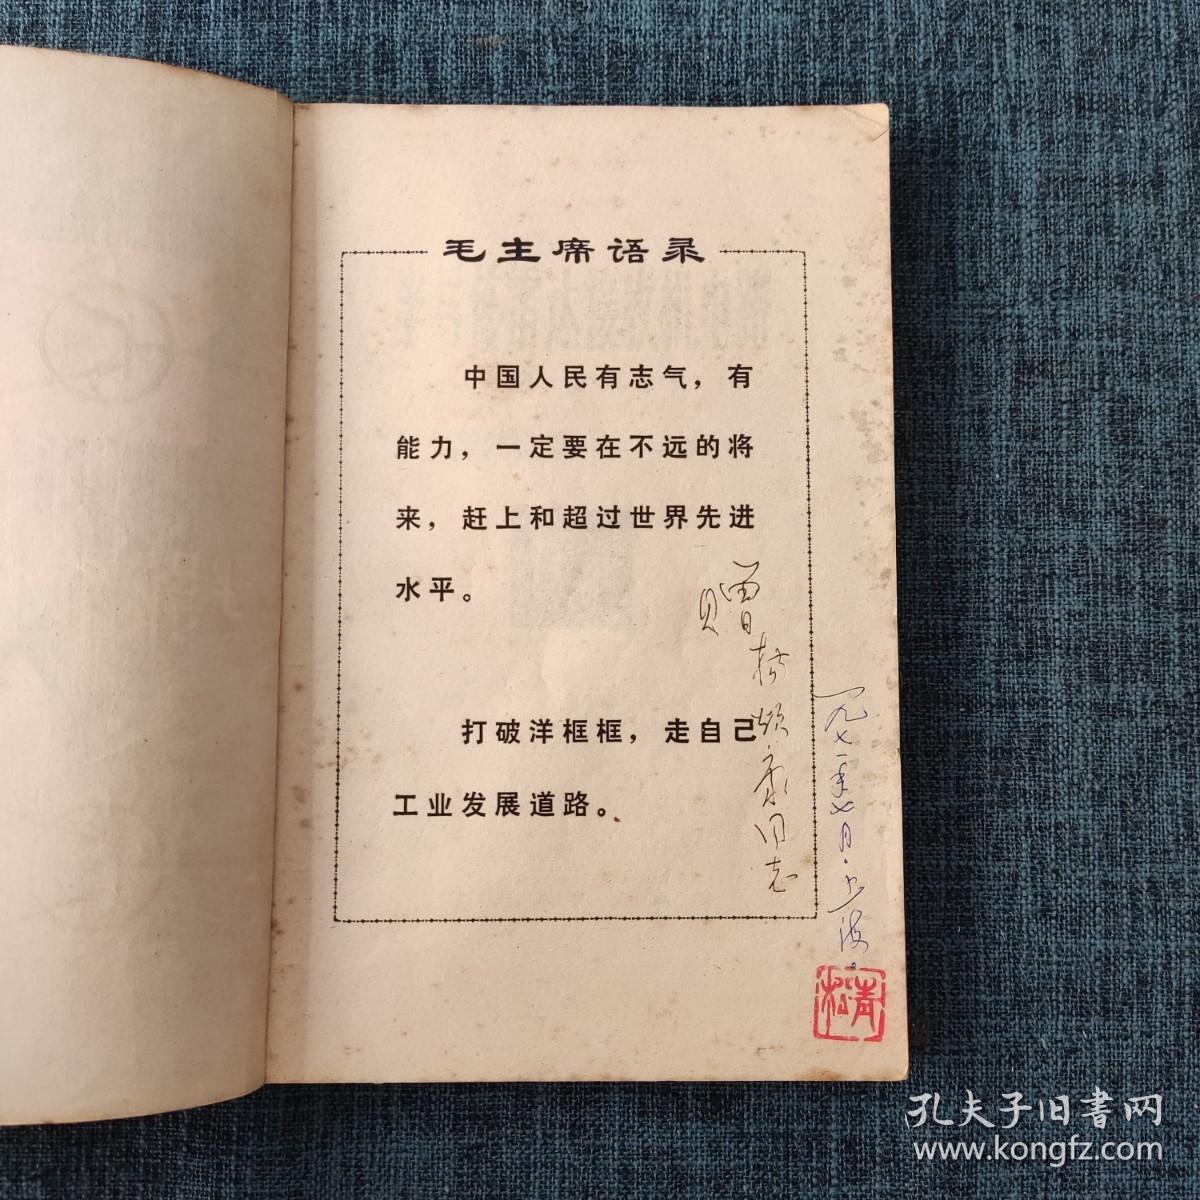 毛主席语录
中国人民有志气，有
能力，一定要在不远的将
来，赶上和超过世界先进
水平。
打破洋框框，走自己
工业发展道路。
赠
同志
一九七一年七月·上海
青松
孔夫子旧書网
www.kongfz.com